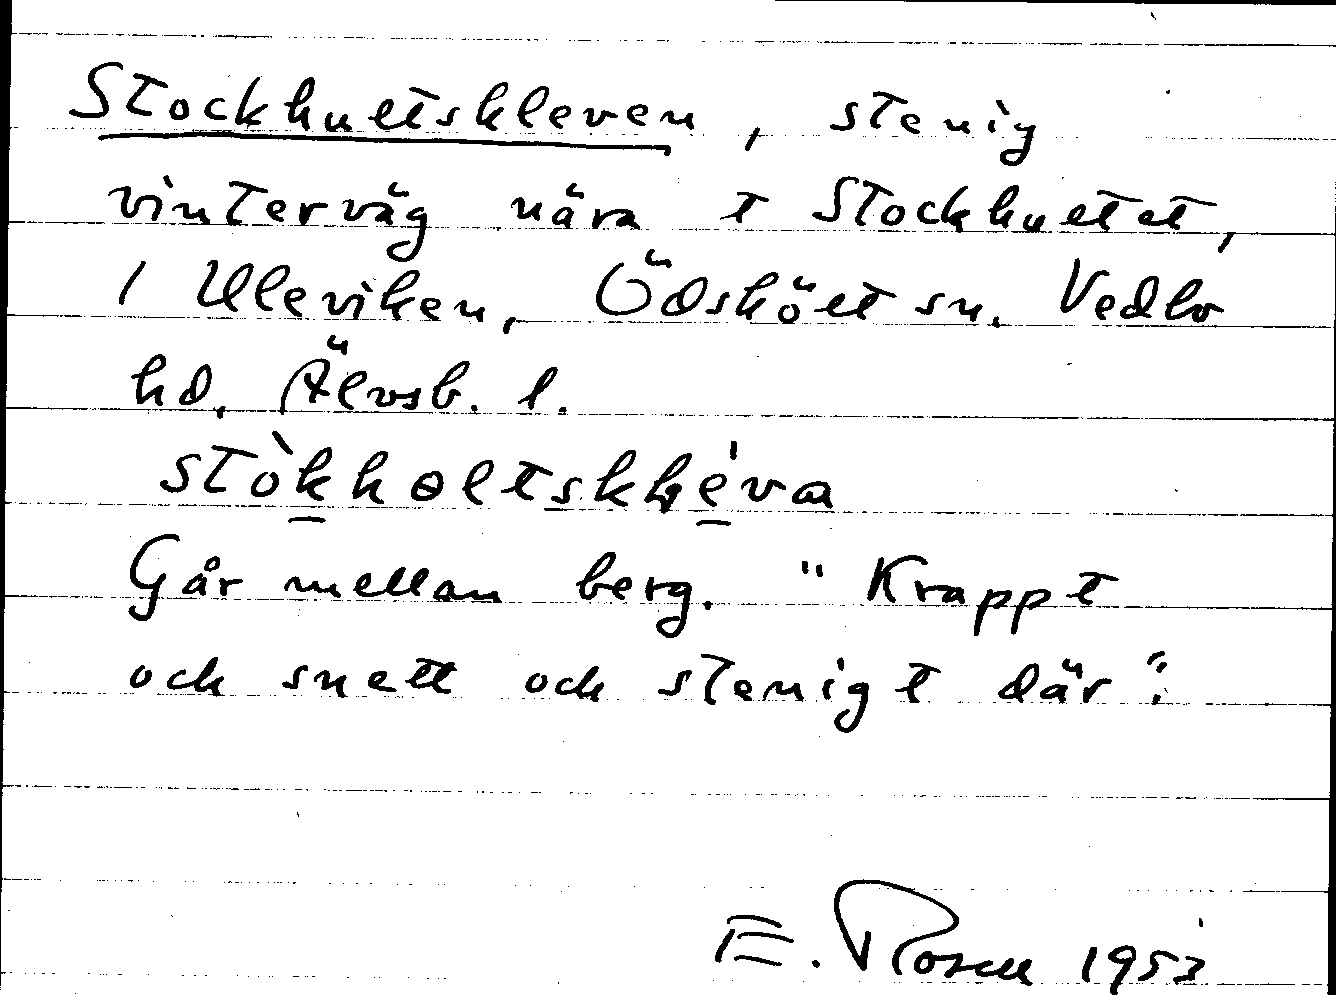 Stockhultskleven, stenig
vinterväg nära t Stockhultet,
1 Uleviken, Ödskölt sn. Vedbo
hd, Älvsb. l.
Går mellan berg. "Krappt
och snett och stenigt där".
E. Rosell 1953